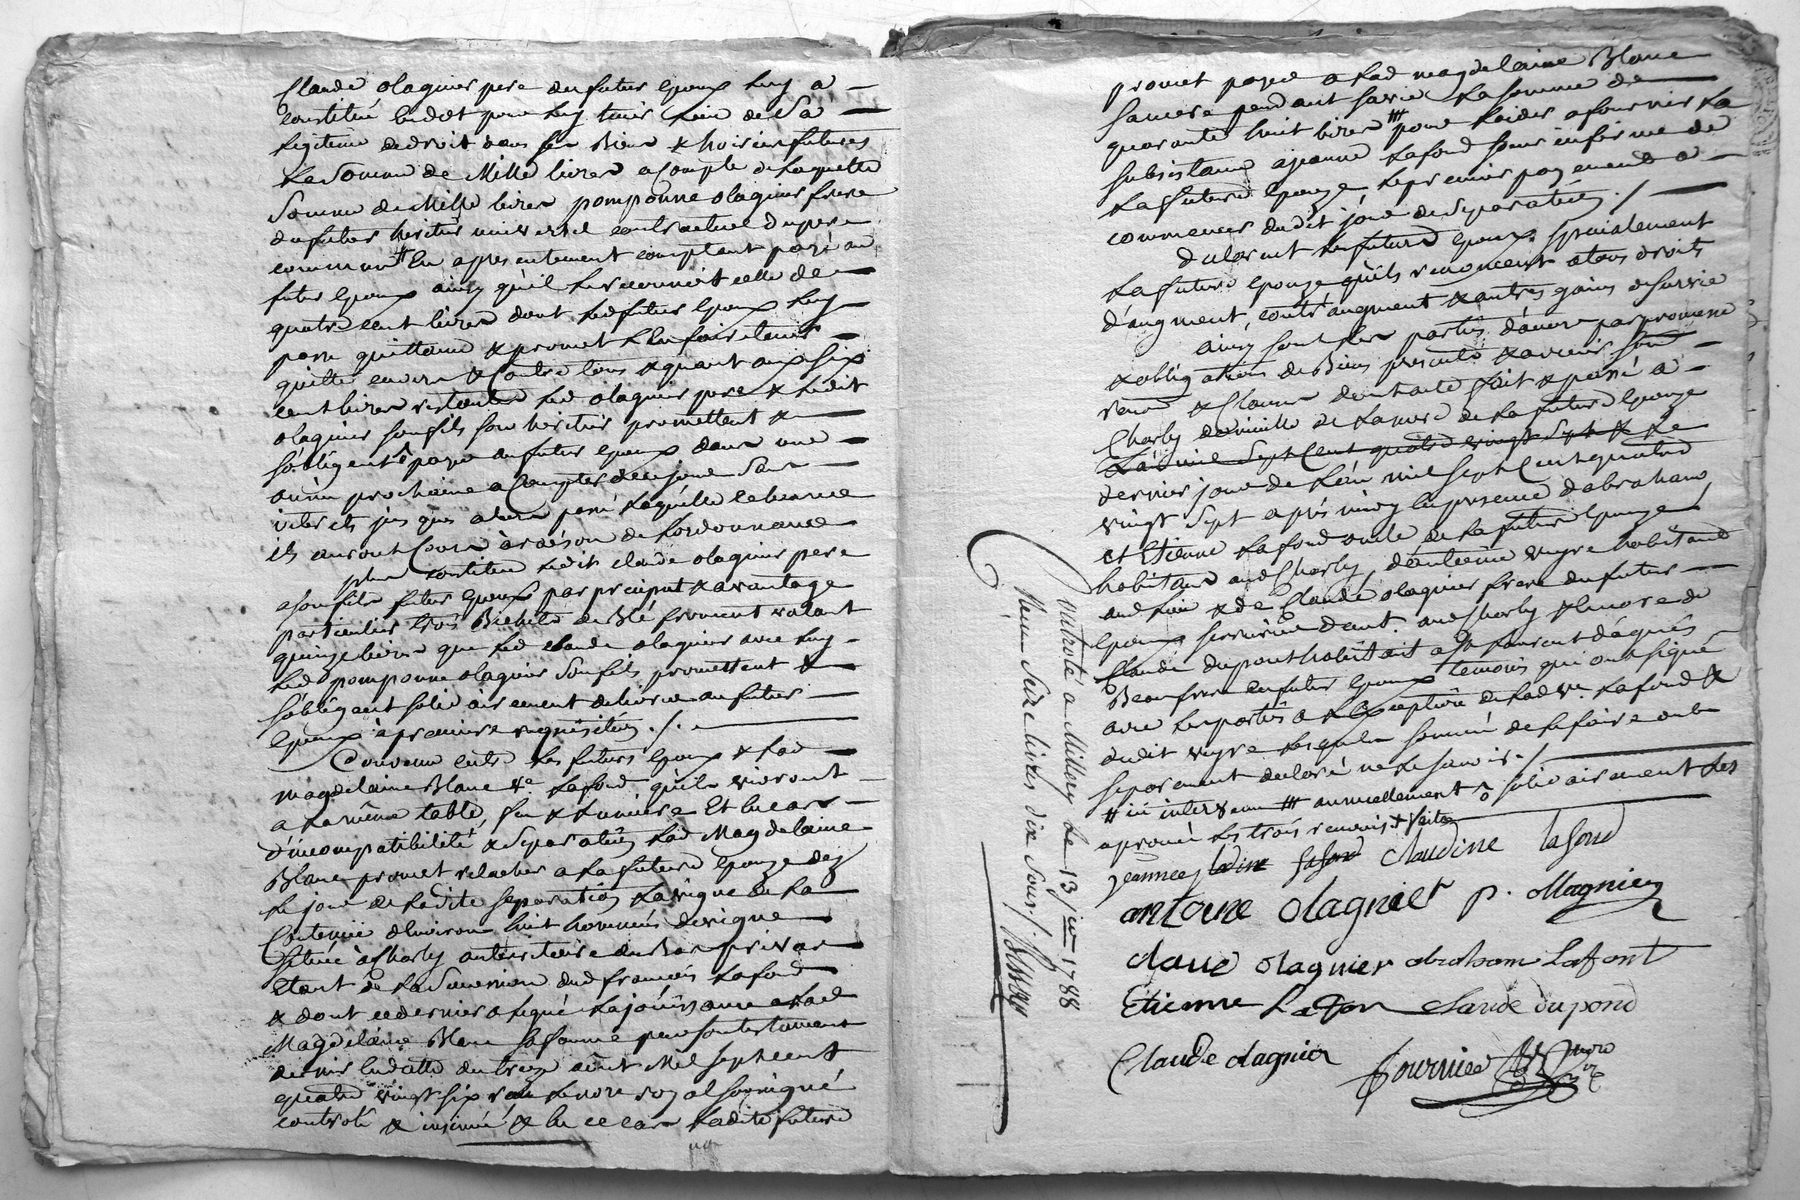 Claude olagnier pere du futur Epoux luy a
Constitué En dot pour luy tenir Lieu de Sa
Legitime de droit dans ses Biens & hoirie futures
La Somme de Mille livres a Compte de Laquelle
Somme de Mille livres pomponne olagnier frere
du futur héritier universel contractuel du pere
commun # En a presentement comptant payé au
futur Epoux ainsy qu'il Le reconnoit celle de
quatre cent livres dont Led futur Epoux Luy
passe quittance & promet L'En faire tenir
quitte envers & Contre tous & quant aux Six
cent livres restantes Led olagnier pere & Ledit
olagnier son fils son héritier promettent &
s'obligent ô payer au futur Epoux dans une
année prochaine a Compter de ce jour Sans
interets jusques alors passé Laquelle Echeance
ils auront Cours à raison de L'ordonnance
plus Constitue Ledit claude olagnier pere
a son fils futur Epoux par préciput & avantage
particulier trois Bichets de Blé froment valant
quinze livres que Led claude olagnier avec Luy
Led pomponne olagnier Son fils promettent &
s'obligent solidairement delivrer au futur
Epoux à premiere requisition ./.
Convenu entre Les futurs Epoux & Lad
magdelaine Blanc ve Lafond, qu'ils vivront
a La même table, feu & Lumiere Et En cas
d'incompatibilité & Separation Lad Magdelaine
Blanc promet relacher a La future Epouze dez
Le jour de Ladite Separation La vigne de La
Contenue d'Environ huit hommées de vigne
Située à Charly au territoire du Bas privas
Etant de La Succession dud françois Lafond
& dont ce dernier a Legué La jouissance a Lad
Magdelaine Blanc Sa femme par son testament
dernier En datte du treze aout Mil Sept cent
quatre vingt six reçu Le nore royal soussigné
controlé & insinué & En ce cas Ladite future
promet payer a Lad magdelaine Blanc
Sa mere pendant Sa vie La Somme de
quarante huit livres ### pour L'aider a fournir La
Subsistance a jeanne Lafond Soeur infirme de
La future Epouze Le premier payement a
commencer dudit jour de Separation ./.
declarent Le futur Epoux Specialement
La future Epouze qu'ils renoncent a tous droits
d'augment, contr'augment & autres gains de Survie
ainsy sont Les parties d'accord par promesse
& obligations de Biens presents & avenir Soum
reno & Clauses dont acte fait & passé a
Charly domicille de La mere de La future Epouze
L'an mil Sept Cent quatre vingt Sept & Le
dernier jour de L'an mil Sept Cent quatre
vingt Sept après midy En presence d'abraham
et Etienne Lafond oncle de La future Epouze
habitans aud Charly, d'antoine veyre habitant
aud Lieu & de Claude olagnier frere du futur
Epoux serrurier dem't. aud Charly & Encore de
Claude dupont habitant a St Laurent d'agnés
Beaufrere du futur Epoux temoins qui ont Signé
avec Les parties a L'Exception de Lad ve Lafond &
dudit veyre Lesquels sommés de Le faire ont
Separement declaré ne Le Savoir ./.
# ici intervenu ### annuellement ô solidairement Les
aprouvé Les trois renvois
Controlé a Millery Le 13 jer 1788
Reçu Seize livres dix Sous ./.
Claudine lafond
antoine Olagnier p. Ollagnier
claude olagnier abraham Lafont
Etienne Lafon claude dupond
Claude olagnier fournier